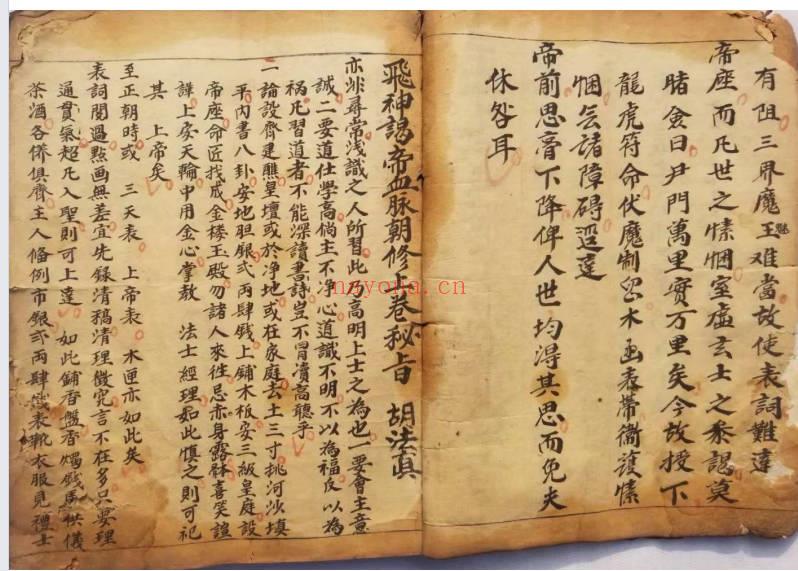 有阻三界魔王难當故使表詞難達
帝座而凡世之愫悃室虛玄士之叅謁莫
睹僉曰尹門萬里實万里矣今故授下
龍虎符命伏魔制邪木函表帶衞護愫
悃気諸障碍迳達
帝前思膏下降俾人世均淂其思而免夫
休咎耳
飛神謁帝血脉朝修上卷秘旨 胡法真
亦非尋常浅識之人所習此乃高明上士之為也一要會主意
誠二要道仕學高倘主不净心道識不明不以為福反以為
祸凡習道者不能深讀書詩岂不冒凟高聽乎
一論設齊建醮皇壇或於净地或在家庭去土三寸挑河沙填
平内書八卦安地胆銀弍両肆戋上鋪木板安三級皇庭設
帝座命匠找成金楼玉殿勿諸人來往忌亦身露体喜笑諠
譁上安天輪中用金心掌敖 法士經理如此慎之則可祀
其 上帝矣
至正朝時或 三天表 上帝表 木匣亦如此矣
表詞閱過點画無差宜先錄清稿清理微究言不在多只要理
通貫氣超凡入聖則可上達 如此鋪香盤香燭戋馬供儀
茶酒各儀俱齊主人偹例市銀弍両肆戋表靴衣服見禮士
nayona.cn